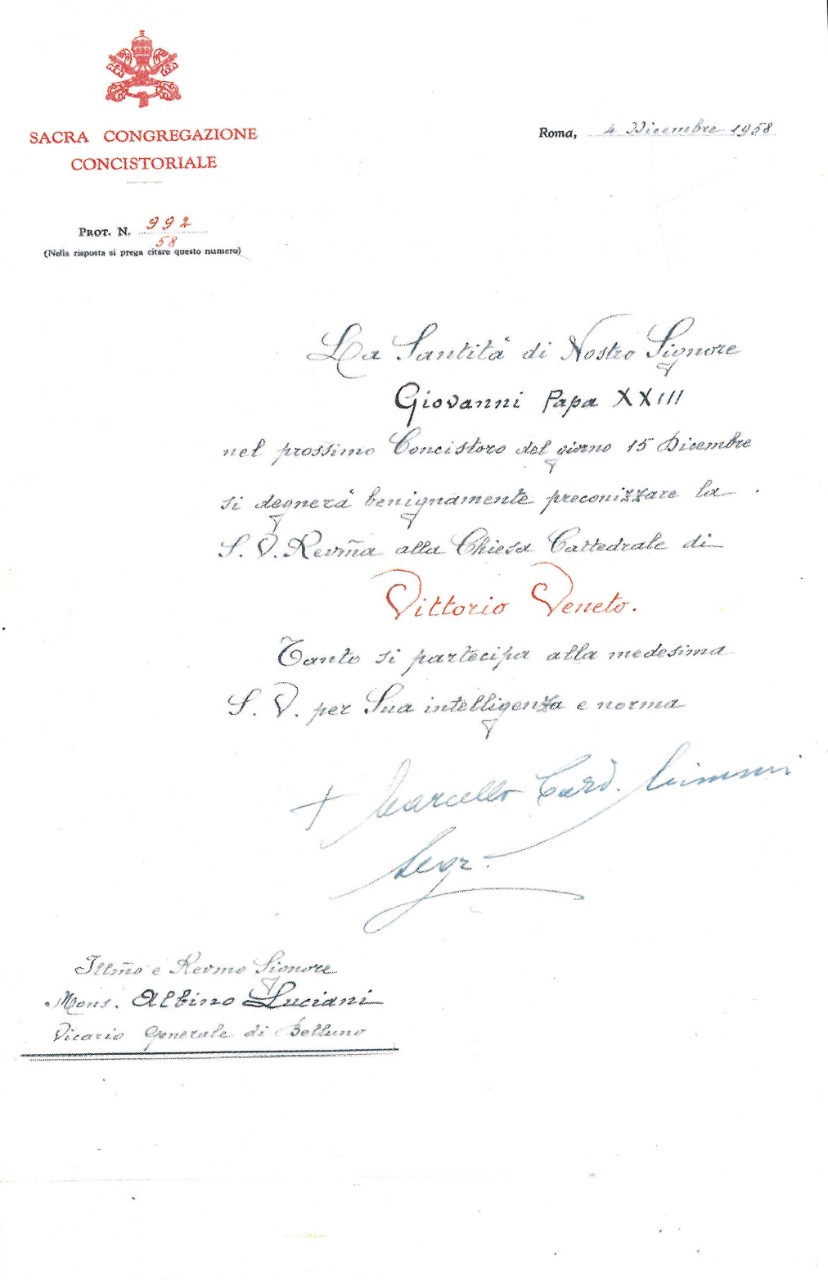 SACRA CONGREGAZIONE
CONCISTORIALE
Roma, 4 Dicembre 1958
PROT. N. 992
58
(Nella risposta si prega citare questo numero)
La Santità di Nostro Signore
Giovanni Papa XXIII
nel prossimo Concistoro del giorno 15 Dicembre
si degnerà benignamente preconizzare la
S. V. Revm̃a alla Chiesa Cattedrale di
Vittorio Veneto.
Tanto si partecipa alla medesima
S. V. per Sua intelligenza e norma
+ Marcello Card. Mimmi
Segr.
Illm̃o e Revmo Signore
Mons. Albino Luciani
Vicario Generale di Belluno